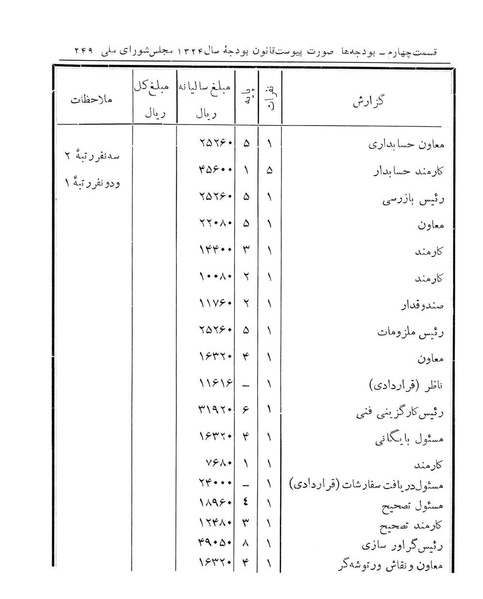 قسمت چهارم ـ بودجه‌ها صورت پیوست قانون بودجهٔ سال ۱۳۲۴ مجلس شورای ملی ۲۴۹
گزارش نفرات پایه مبلغ سالیانه ریال مبلغ کل ریال ملاحظات
معاون حسابداری ۱ ۵ ۲۵۲۶۰
کارمند حسابدار ۵ ۱ ۴۵۶۰۰ سه نفر رتبهٔ ۲
رئیس بازرسی ۱ ۵ ۲۵۲۶۰ ودو نفر رتبهٔ ۱
معاون ۱ ۵ ۲۲۰۸۰
کارمند ۱ ۳ ۱۴۴۰۰
کارمند ۱ ۲ ۱۰۰۸۰
صندوقدار ۱ ۲ ۱۱۷۶۰
رئیس ملزومات ۱ ۵ ۲۵۲۶۰
معاون ۱ ۴ ۱۶۳۲۰
ناظر (قراردادی) ۱ ـ ۱۱۶۱۶
رئیس کارگزینی فنی ۱ ۶ ۳۱۹۲۰
مسئول بایگانی ۱ ۴ ۱۶۳۲۰
کارمند ۱ ۱ ۷۶۸۰
مسئول دریافت سفارشات (قراردادی) ۱ ـ ۲۴۰۰۰
مسئول تصحیح ۱ ۴ ۱۸۹۶۰
کارمند تصحیح ۱ ۳ ۱۲۴۸۰
رئیس گراور سازی ۱ ۸ ۴۹۰۵۰
معاون و نقاش ورتوشه‌گر ۱ ۴ ۱۶۳۲۰